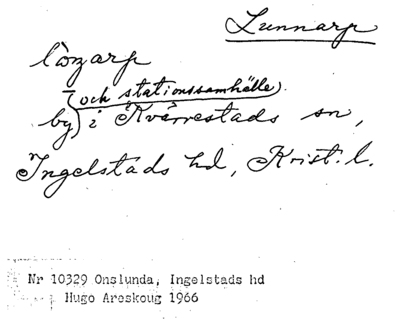 Lunnarp
(och stationssamhälle)
by i Kverrestads sn,
Ingelstads hd, Krist. l.
Nr 10329 Onslunda, Ingelstads hd
Hugo Areskoug 1966